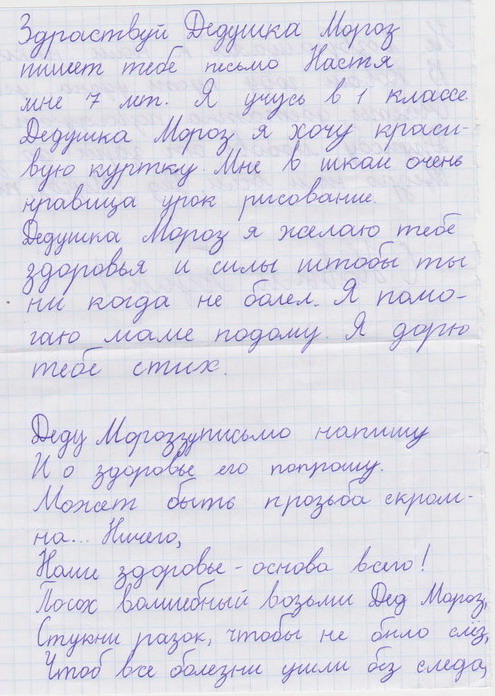 Здраствуй Дедушка Мороз
пишет тебе письмо Настя
мне 7 лет. Я учусь в 1 классе.
Дедушка Мороз я хочу краси-
вую куртку. Мне в шкаи очень
нравица урок рисование.
Дедушка Мороз я желаю тебе
здоровья и силы штобы ты
ни когда не болел. Я помо-
гаю маме подому. Я дорю
тебе стих.
Деду Морозу письмо напишу
И о здоровье его попрошу.
Может быть прозьба скром-
на... Ничего,
Наше здоровье - основа всего!
Посох волшебный возьми Дед Мороз,
Стукни разок, чтобы не было слёз,
Чтоб все болезни ушли без следа,